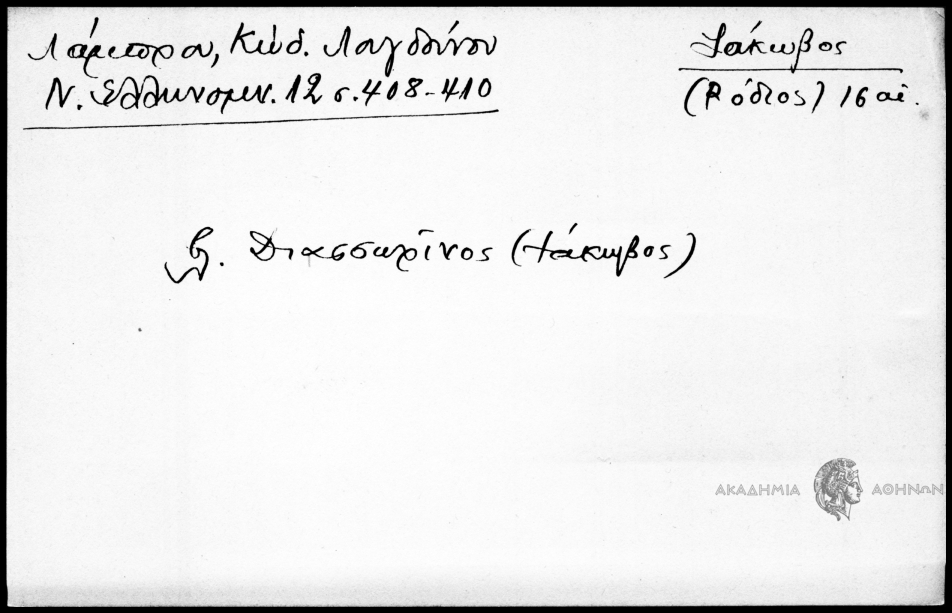 Λάμπρου, Κώδ. Λουγδούνου
Ν. Ἑλληνομν. 12 σ. 408-410
Ἰάκωβος
(Ῥόδιος) 16 αἰ.
βλ. Διασσωρῖνος (Ἰάκωβος)
ΑΚΑΔΗΜΙΑ ΑΘΗΝΩΝ